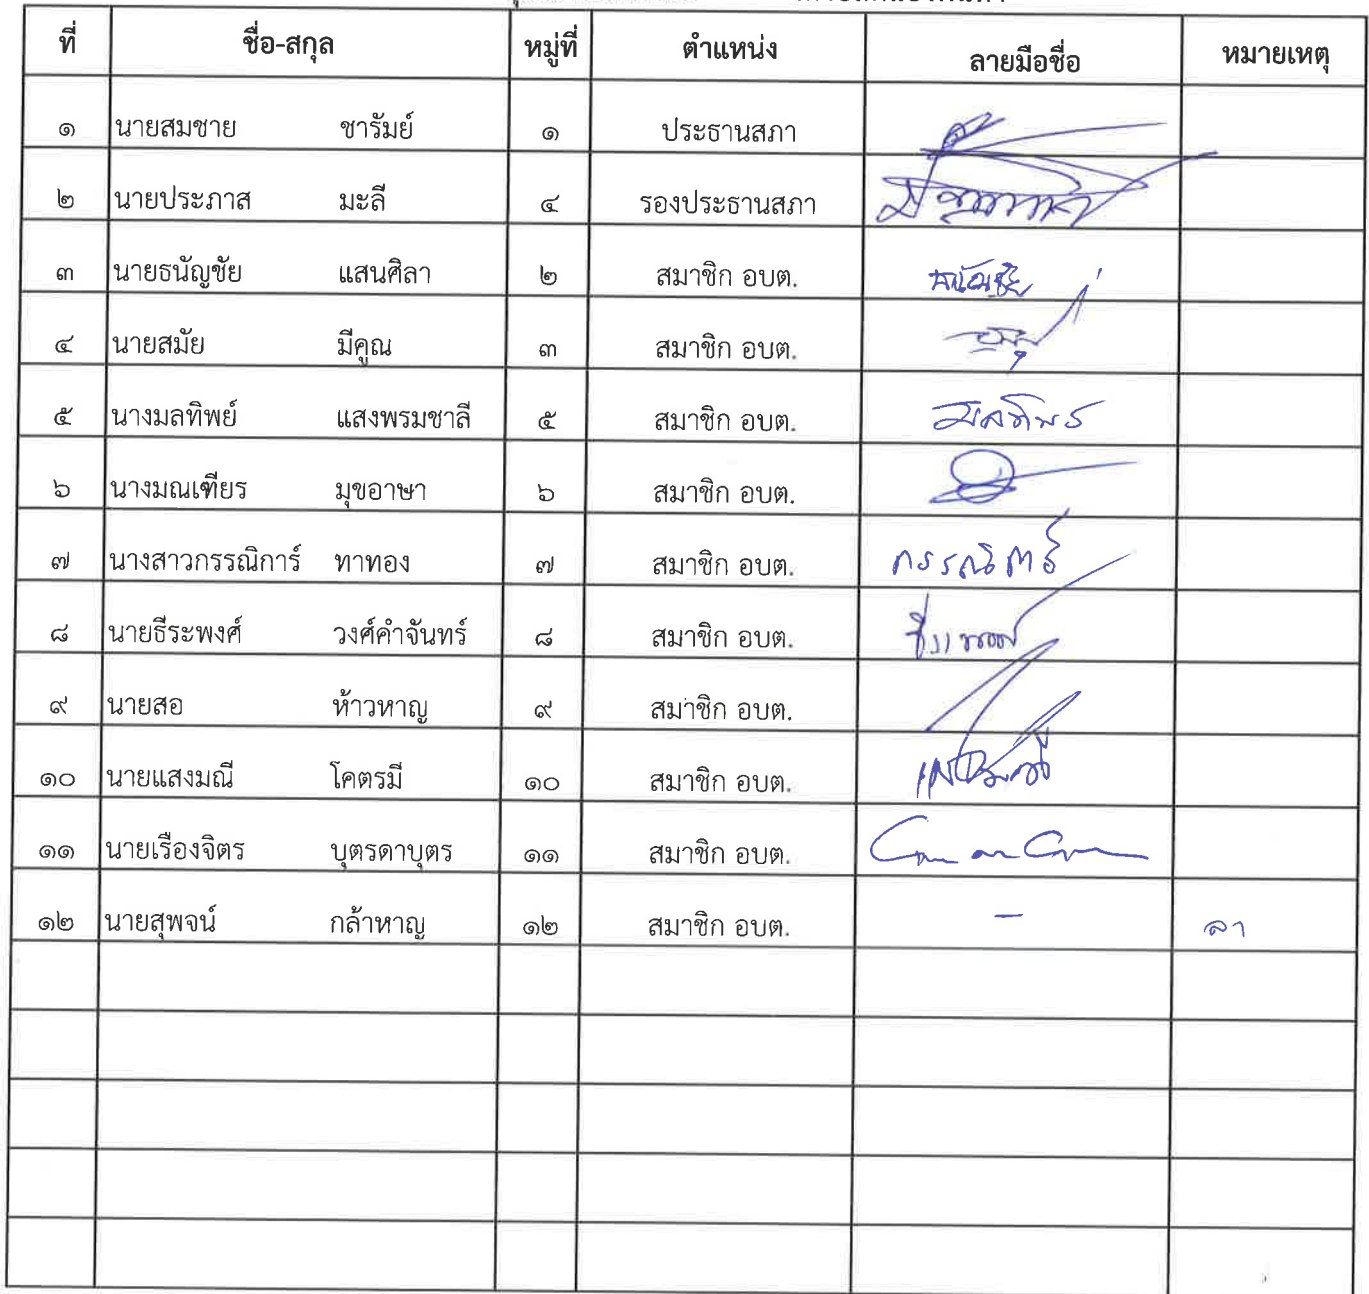 ที่ ชื่อ-สกุล หมู่ที่ ตำแหน่ง ลายมือชื่อ หมายเหตุ
๑ นายสมชาย ชารัมย์ ๑ ประธานสภา
๒ นายประภาส มะลี ๔ รองประธานสภา
๓ นายธนัญชัย แสนศิลา ๒ สมาชิก อบต. ธนัญชัย
๔ นายสมัย มีคูณ ๓ สมาชิก อบต.
๕ นางมลทิพย์ แสงพรมชาลี ๕ สมาชิก อบต. มลทิพย์
๖ นางมณเฑียร มุขอาษา ๖ สมาชิก อบต.
๗ นางสาวกรรณิการ์ ทาทอง ๗ สมาชิก อบต. กรรณิการ์
๘ นายธีระพงศ์ วงศ์คำจันทร์ ๘ สมาชิก อบต.
๙ นายสอ ห้าวหาญ ๙ สมาชิก อบต.
๑๐ นายแสงมณี โคตรมี ๑๐ สมาชิก อบต.
๑๑ นายเรืองจิตร บุตรดาบุตร ๑๑ สมาชิก อบต.
๑๒ นายสุพจน์ กล้าหาญ ๑๒ สมาชิก อบต. - ลา